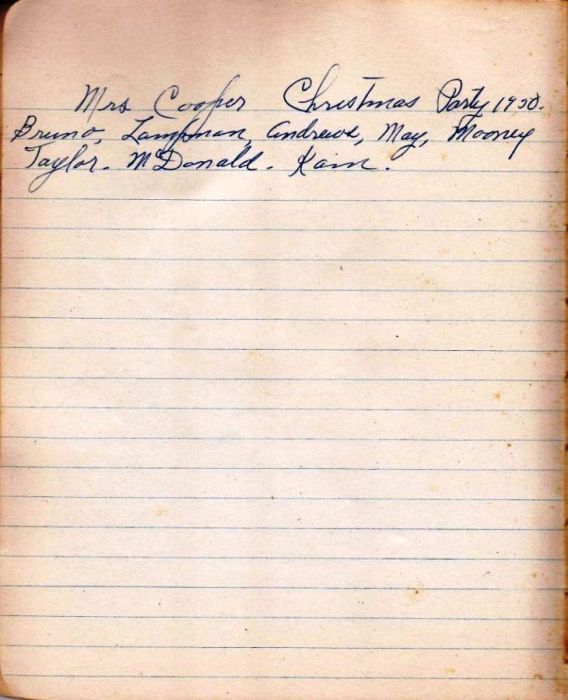 Mrs Cooper Christmas Party 1950.
Bruno, Lampman, Andrews, May, Mooney
Taylor. McDonald. Kain.